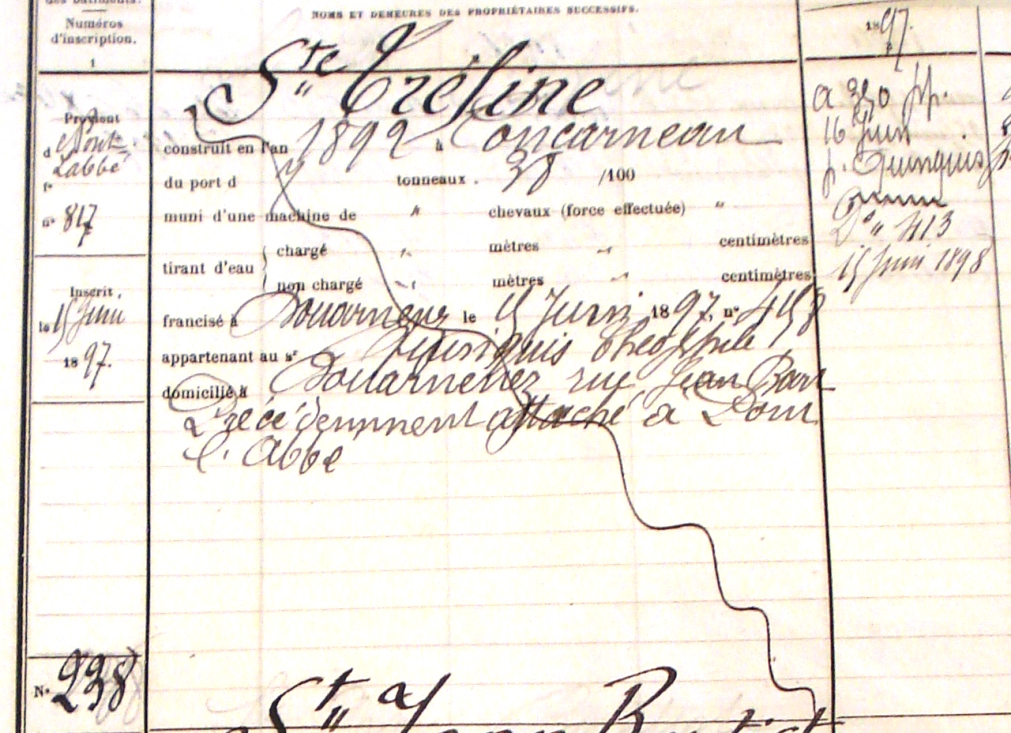 des bâtiments.
Numéros
d'inscription.
1
NOMS ET DEMEURES DES PROPRIÉTAIRES SUCCESSIFS.
1897.
Ste Tréfine
Provient
d e Pont
Labbé
f°
n° 817
construit en l'an 1892 à Concarneau
du port d 7 tonneaux. 38 /100
muni d'une machine de " chevaux (force effectuée) "
tirant d'eau
chargé " mètres " centimètres
non chargé " mètres " centimètres
Inscrit,
le 15 Juin
1897.
francisé à Douarnenez le 15 Juin 1897, n° 458
appartenant au sr Quinquis Théophile
domicilié à Douarnenez rue Jean Bart
Précédemment attaché à Pont
l'Abbé
a 350
16 Juin
p. Quinquis
D° " 413
15 Juin 1898
N° 238
St Jean Baptist